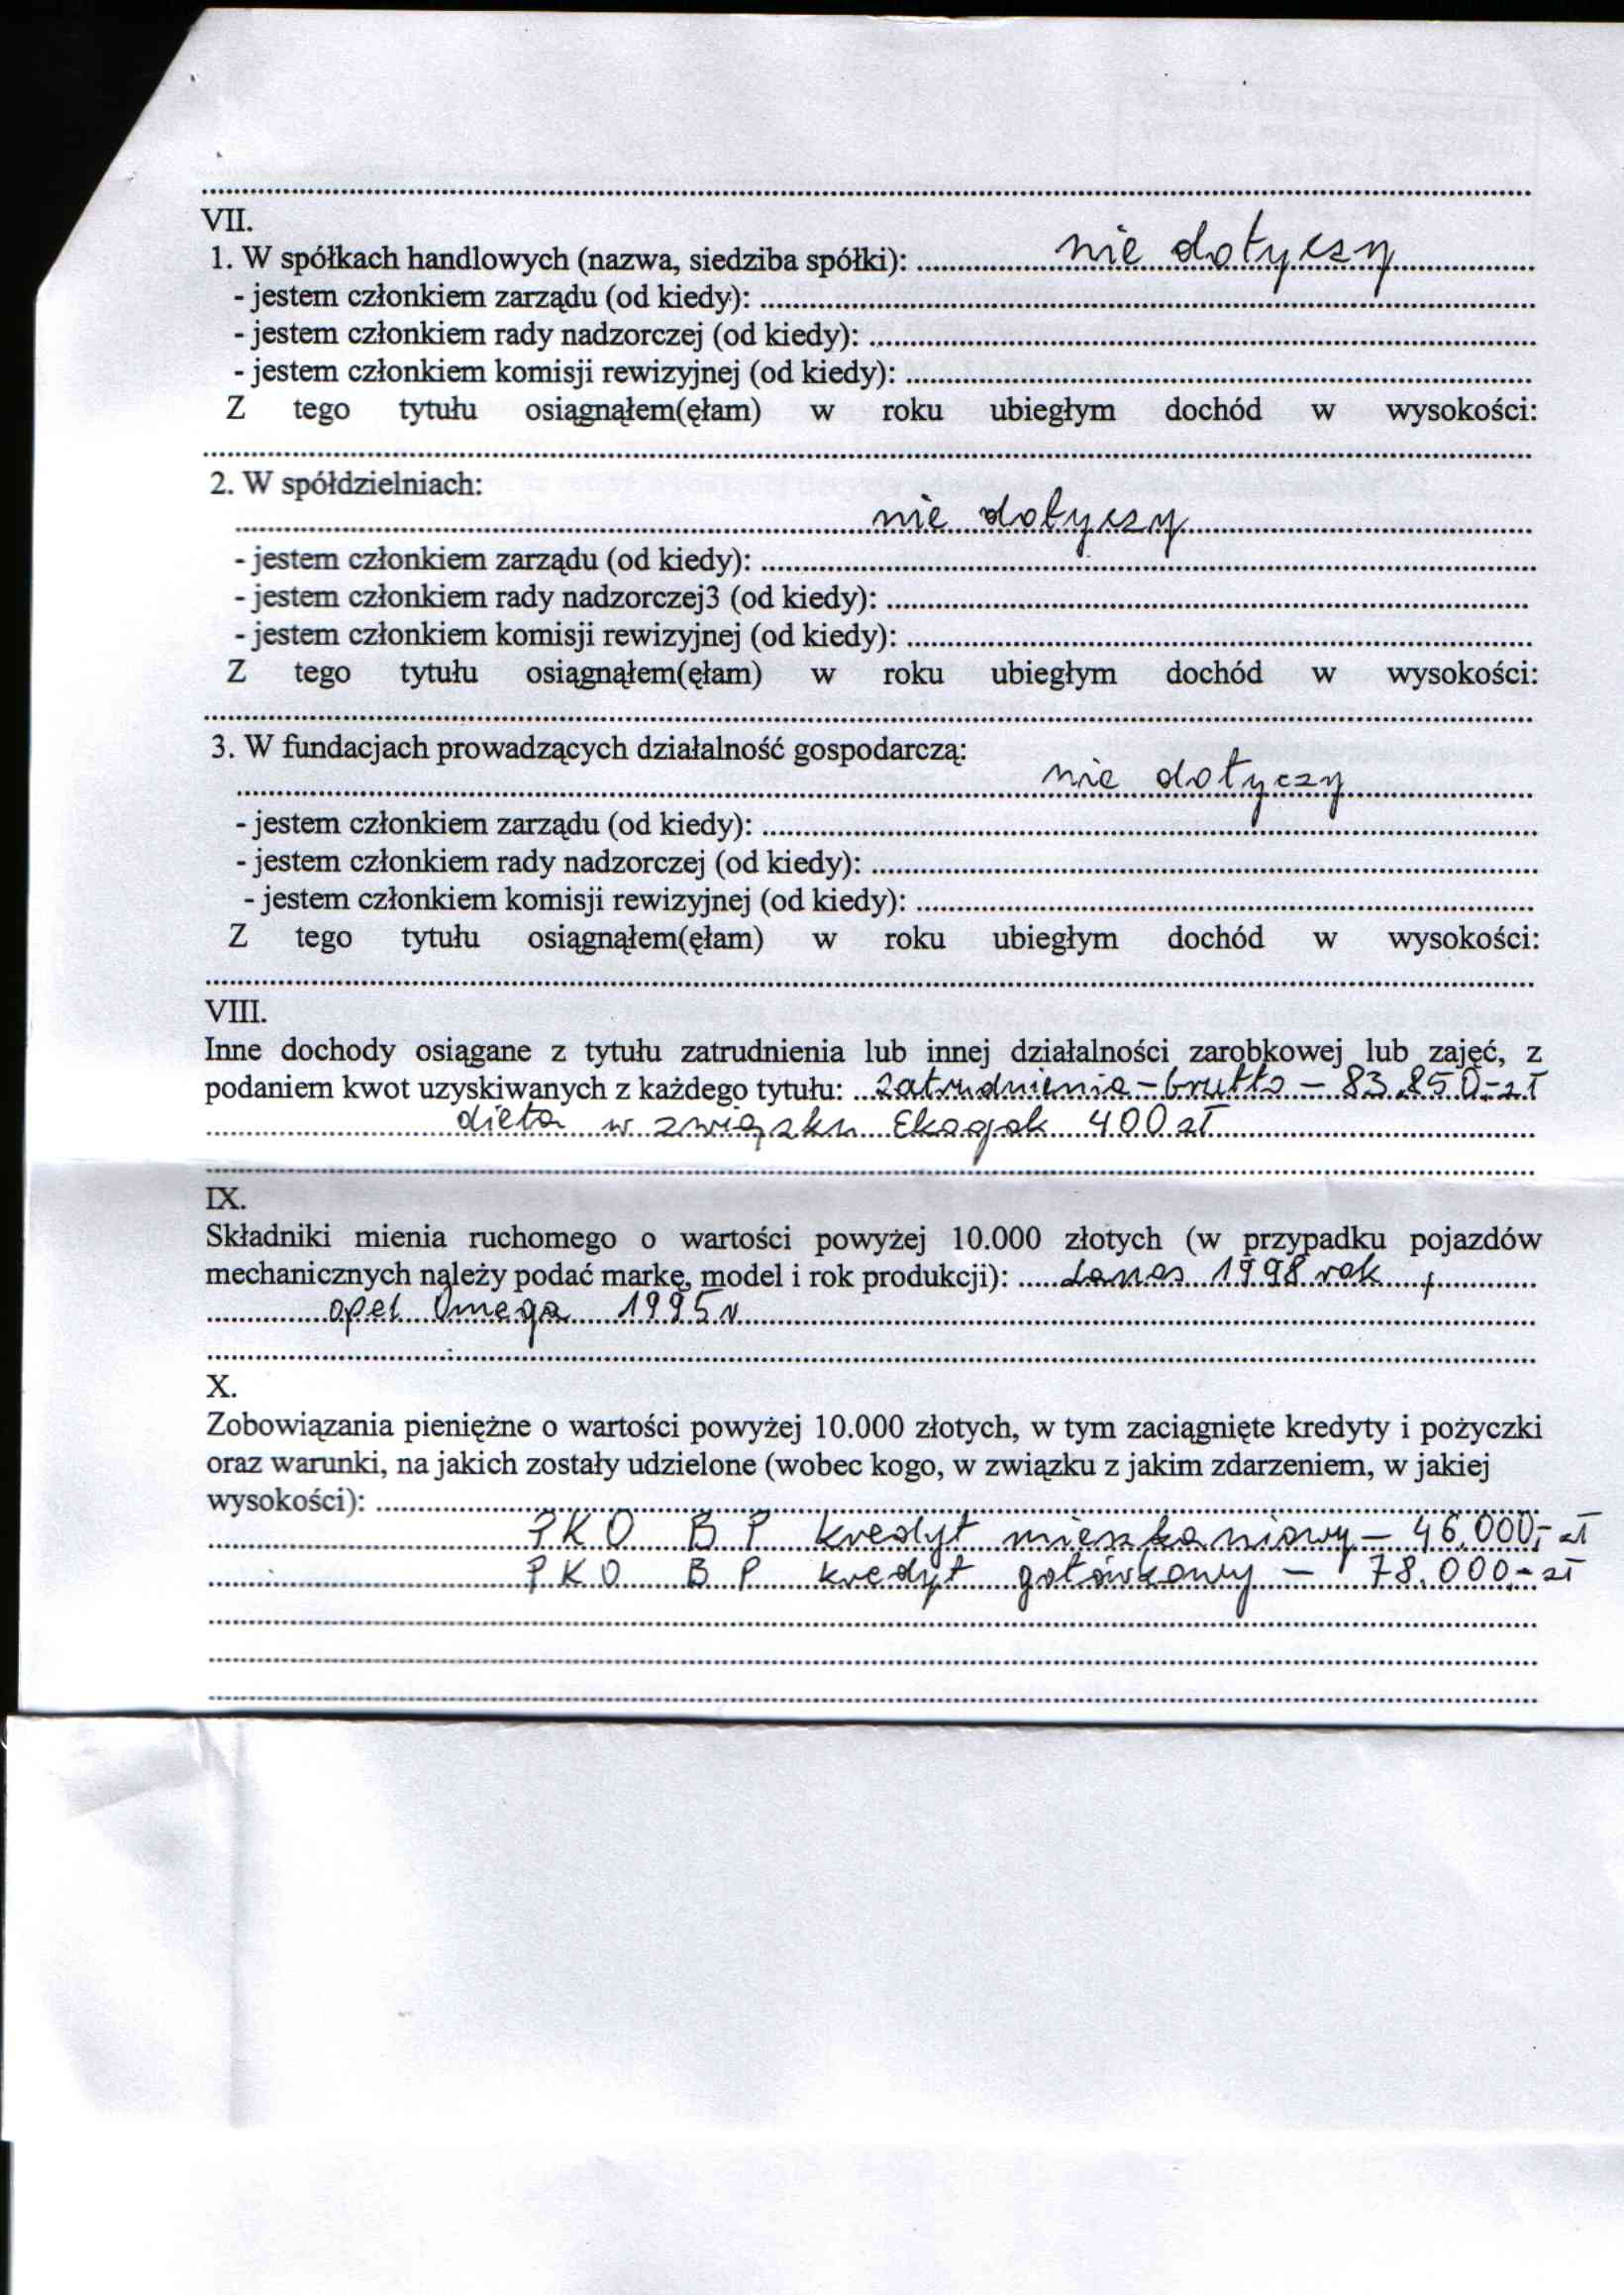 VII.
1. W spółkach handlowych (nazwa, siedziba spółki): nie dotyczy
- jestem członkiem zarządu (od kiedy):
- jestem członkiem rady nadzorczej (od kiedy):
- jestem członkiem komisji rewizyjnej (od kiedy):
Z tego tytułu osiągnąłem(ęłam) w roku ubiegłym dochód w wysokości:
2. W spółdzielniach:
nie dotyczy
- jestem członkiem zarządu (od kiedy):
- jestem członkiem rady nadzorczej3 (od kiedy):
- jestem członkiem komisji rewizyjnej (od kiedy):
Z tego tytułu osiągnąłem(ęłam) w roku ubiegłym dochód w wysokości:
3. W fundacjach prowadzących działalność gospodarczą:
nie dotyczy
- jestem członkiem zarządu (od kiedy):
- jestem członkiem rady nadzorczej (od kiedy):
- jestem członkiem komisji rewizyjnej (od kiedy):
Z tego tytułu osiągnąłem(ęłam) w roku ubiegłym dochód w wysokości:
VIII.
Inne dochody osiągane z tytułu zatrudnienia lub innej działalności zarobkowej lub zajęć, z
podaniem kwot uzyskiwanych z każdego tytułu: zatrudnienie - brutto - 83.850,- zł
dieta w związku Ekogok 400 zł
IX.
Składniki mienia ruchomego o wartości powyżej 10.000 złotych (w przypadku pojazdów
mechanicznych należy podać markę, model i rok produkcji): Lanos 1998 rok,
opel Omega 1995 r
X.
Zobowiązania pieniężne o wartości powyżej 10.000 złotych, w tym zaciągnięte kredyty i pożyczki
oraz warunki, na jakich zostały udzielone (wobec kogo, w związku z jakim zdarzeniem, w jakiej
wysokości):
PKO BP kredyt mieszkaniowy - 46.000,- zł
PKO BP kredyt gotówkowy - 78.000,- zł